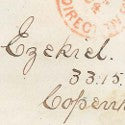 DIREC
Ezekiel.
33.15.
Copen